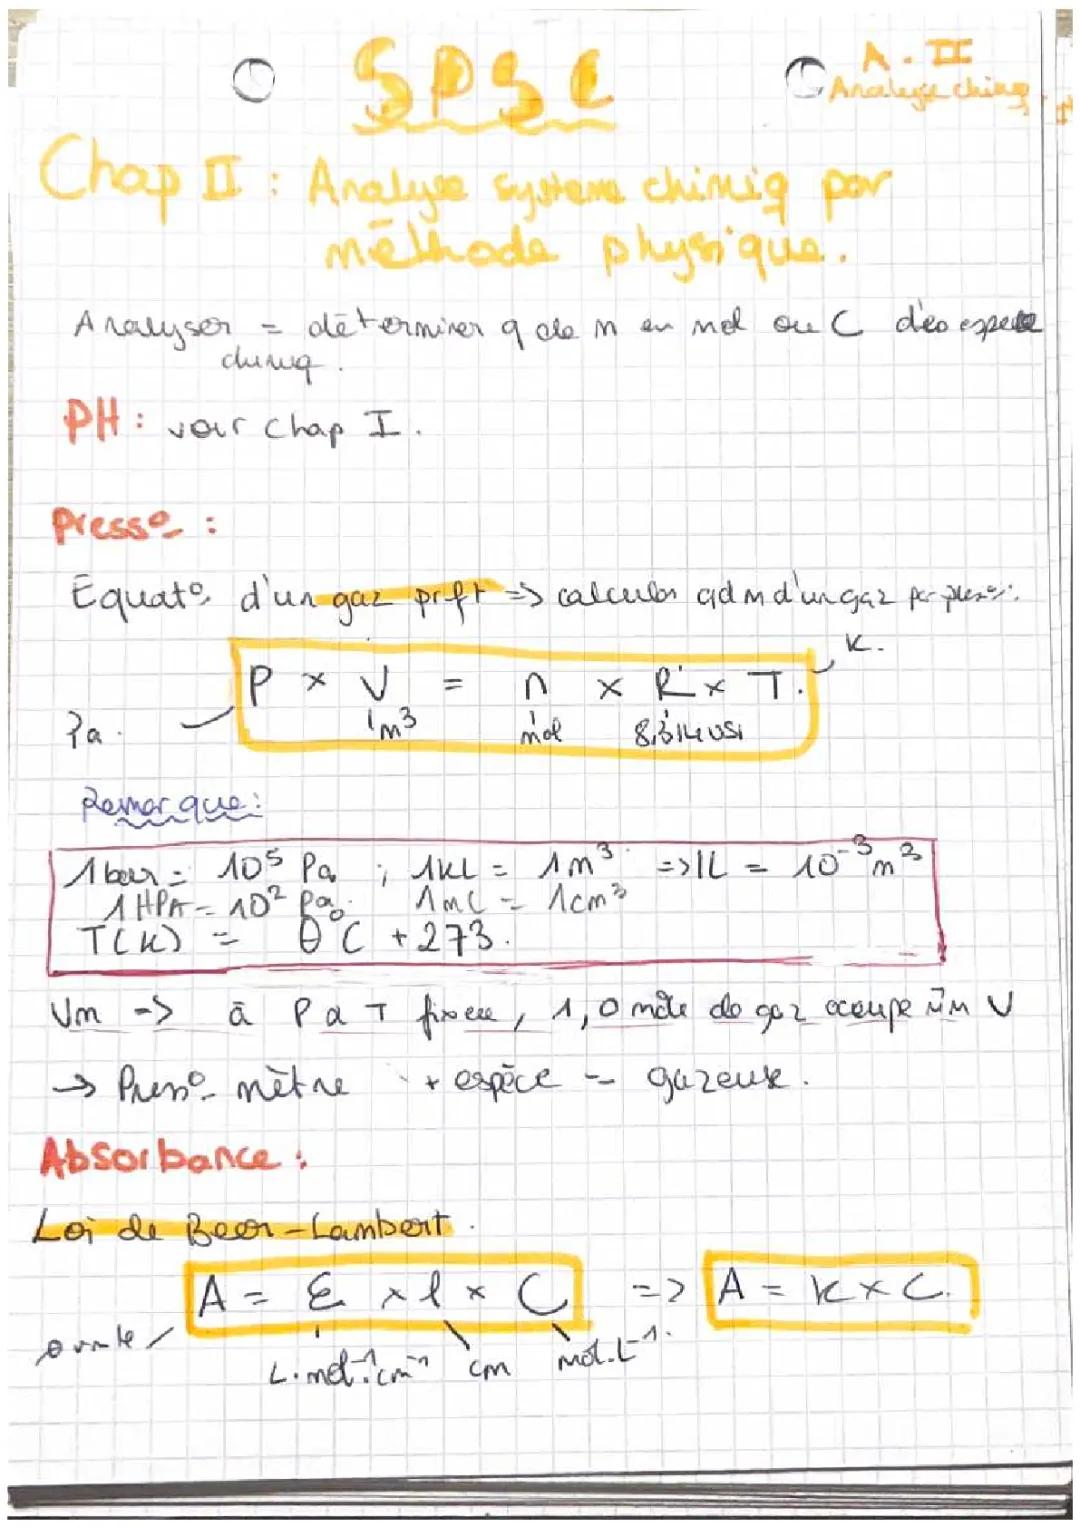 SPSC
A. II
Analyse chimq
Chap II : Analyse système chimiq par
méthode physique.
Analyser = déterminer q de m en mol ou C des espece
chimiq.
PH : voir Chap I.
Press° :
Equat° d'un gaz prft => calculer qdm d'un gaz par press° :
P × V = n × R × T.
K.
Pa. m³ mol 8,314 USI
Remarque :
1 bar = 10⁵ Pa ; 1kL = 1m³ => 1L = 10⁻³ m³
1 HPA = 10² Pa. 1mL = 1cm³
T(K) = θ°C + 273.
Vm -> à P a T fixée, 1,0 mole de gaz occupe un V
-> Press° mètre + espèce = gazeuse.
Absorbance :
Loi de Beer-Lambert.
A = ε × l × C => A = k × C.
L.mol⁻¹.cm⁻¹ cm mol.L⁻¹.